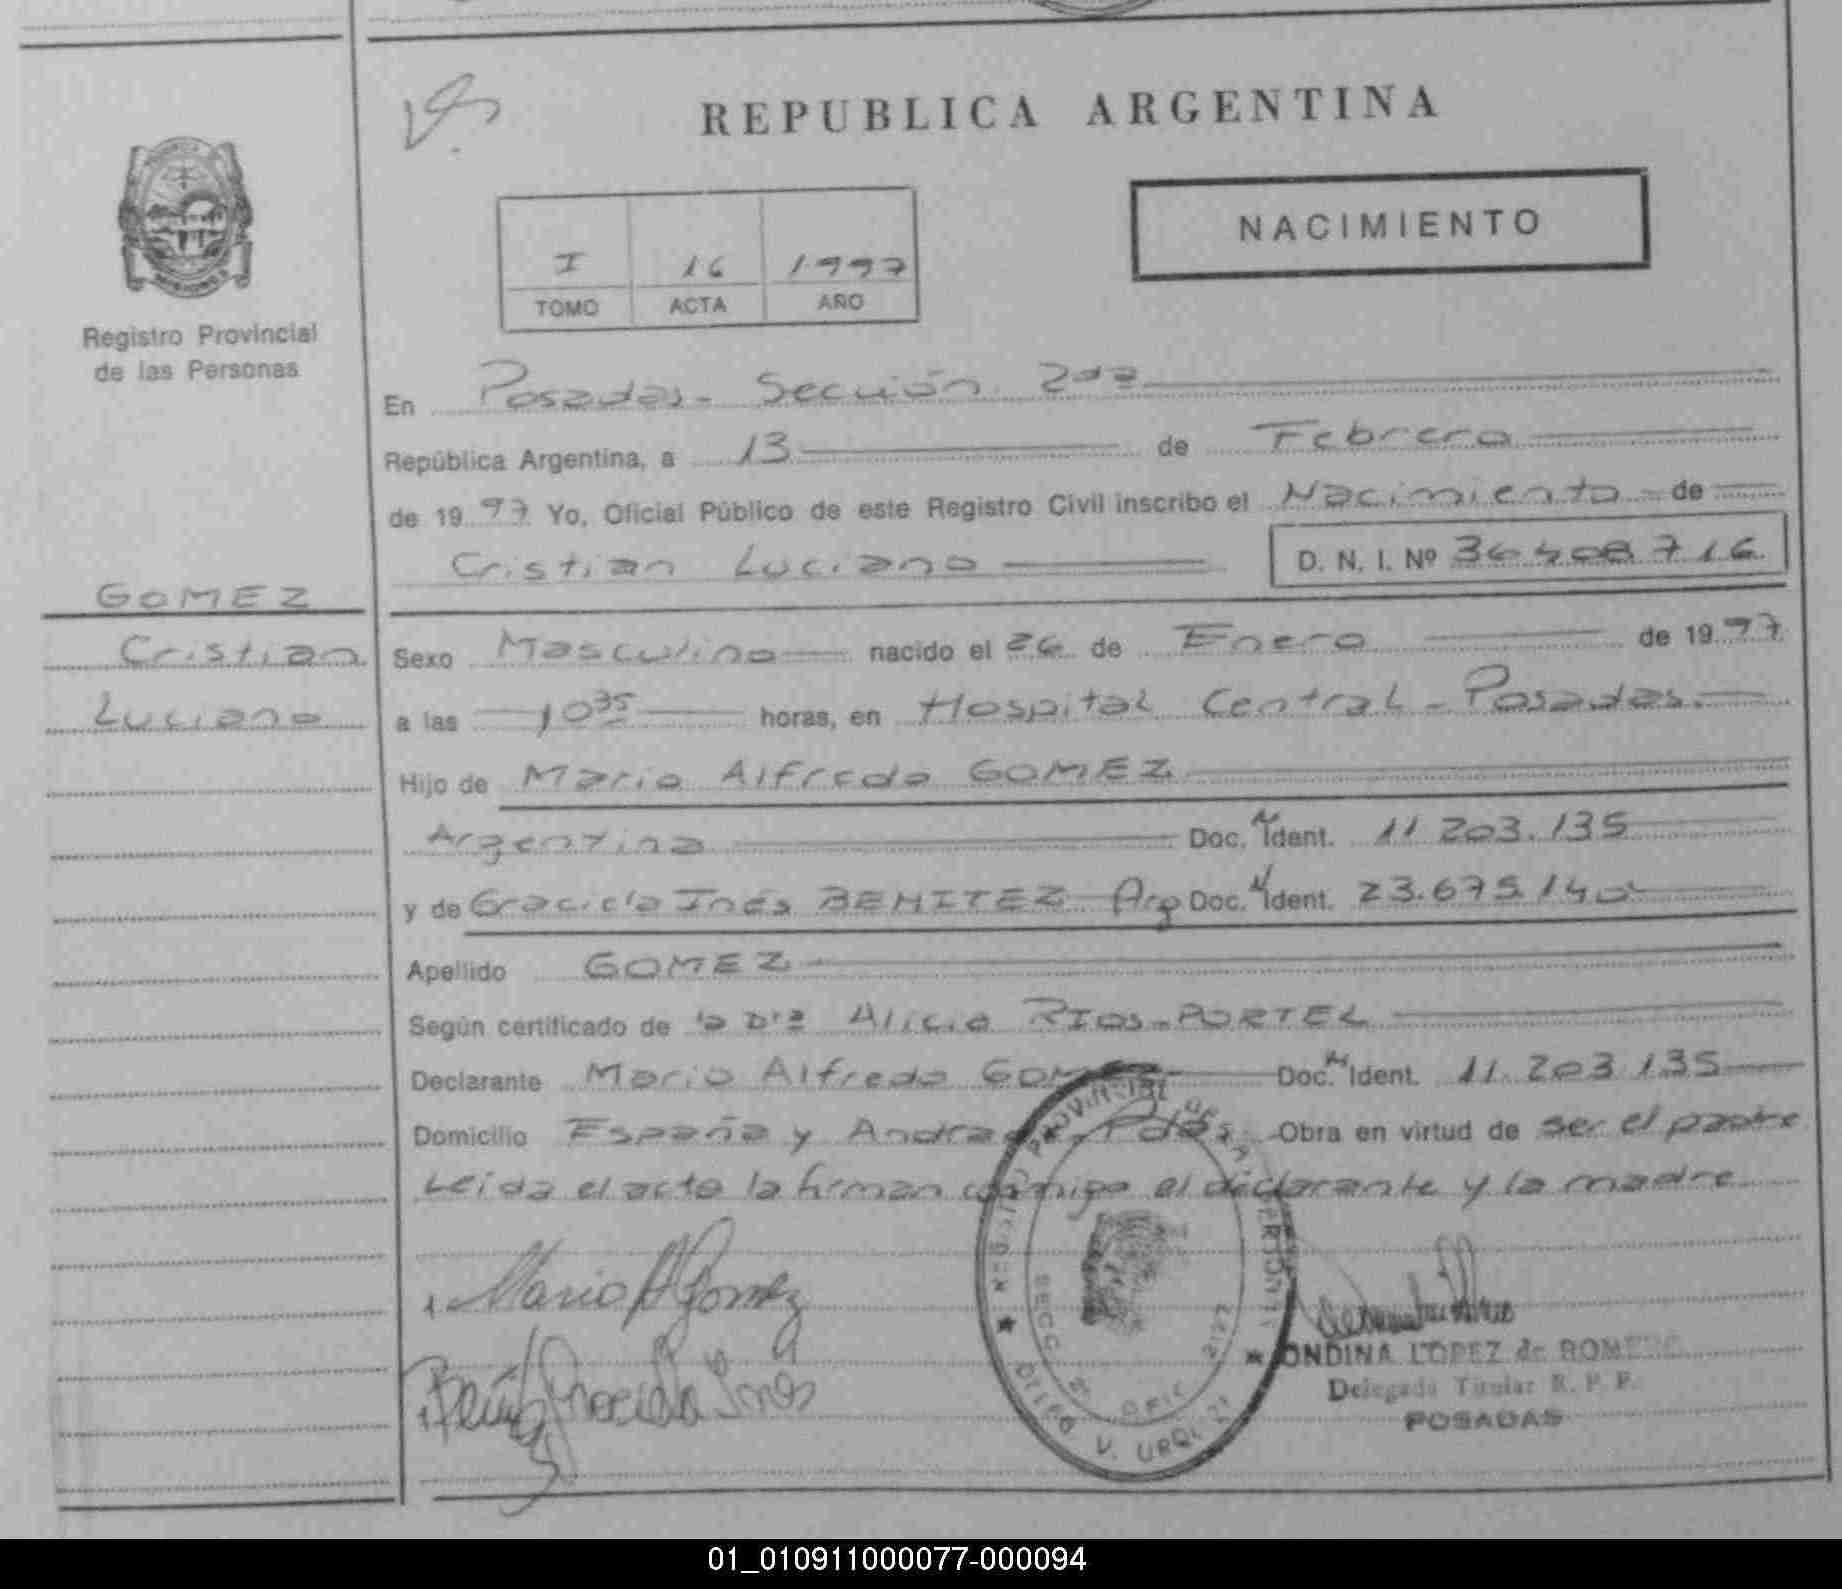 REPUBLICA ARGENTINA
NACIMIENTO
I 16 1997
TOMO ACTA AÑO
Registro Provincial
de las Personas
En Posadas - Sección 2da
República Argentina, a 13 de Febrero
de 1997 Yo, Oficial Público de este Registro Civil inscribo el Nacimiento de
Cristian Luciano D. N. I. Nº
GOMEZ
Cristian
Luciano
Sexo Masculino nacido el 26 de Enero de 1997
a las 10 35 horas, en Hospital Central - Posadas.
Hijo de Mario Alfredo GOMEZ
Argentina Doc. N Ident. 11.203.135
y de Graciela Inés BENITEZ Arg Doc. N Ident. 23.675.140
Apellido GOMEZ
Según certificado de la Dra Alicia RIOS - PORTEL
Declarante Mario Alfredo GOMEZ Doc. N Ident. 11.203.135
Domicilio España y Andrade - Pdas. Obra en virtud de ser el padre
Leida el acta la firman conmigo el declarante y la madre
Mario A Gomez
Graciela Inés
REGISTRO PROVINCIAL DE LAS PERSONAS
SECC. 2ª OFIC.
V. URQUIZA
ONDINA LOPEZ de ROMERO
Delegada Titular R. P. P.
POSADAS
01_010911000077-000094